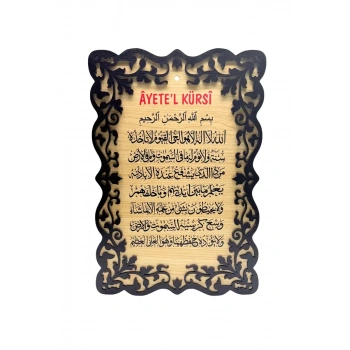 ÂYETE'L KÜRSÎ
بِسْمِ اللَّهِ الرَّحْمَنِ الرَّحِيمِ
اللَّهُ لَا إِلَهَ إِلَّا هُوَ الْحَيُّ الْقَيُّومُ لَا تَأْخُذُهُ
سِنَةٌ وَلَا نَوْمٌ لَهُ مَا فِي السَّمَوَاتِ وَمَا فِي الْأَرْضِ
مَنْ ذَا الَّذِي يَشْفَعُ عِنْدَهُ إِلَّا بِإِذْنِهِ
يَعْلَمُ مَا بَيْنَ أَيْدِيهِمْ وَمَا خَلْفَهُمْ
وَلَا يُحِيطُونَ بِشَيْءٍ مِنْ عِلْمِهِ إِلَّا بِمَا شَاءَ
وَسِعَ كُرْسِيُّهُ السَّمَوَاتِ وَالْأَرْضَ
وَلَا يَؤُدُهُ حِفْظُهُمَا وَهُوَ الْعَلِيُّ الْعَظِيمُ